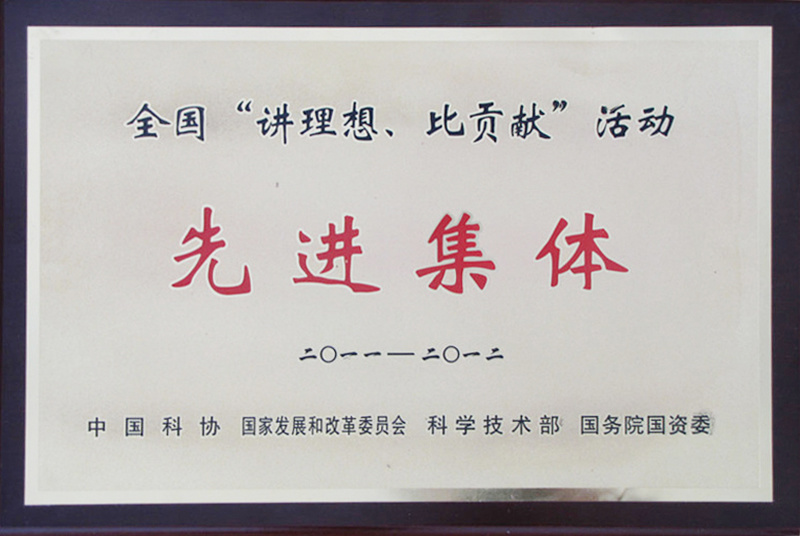 全国“讲理想、比贡献”活动
先进集体
二〇一一—二〇一二
中国科协 国家发展和改革委员会 科学技术部 国务院国资委